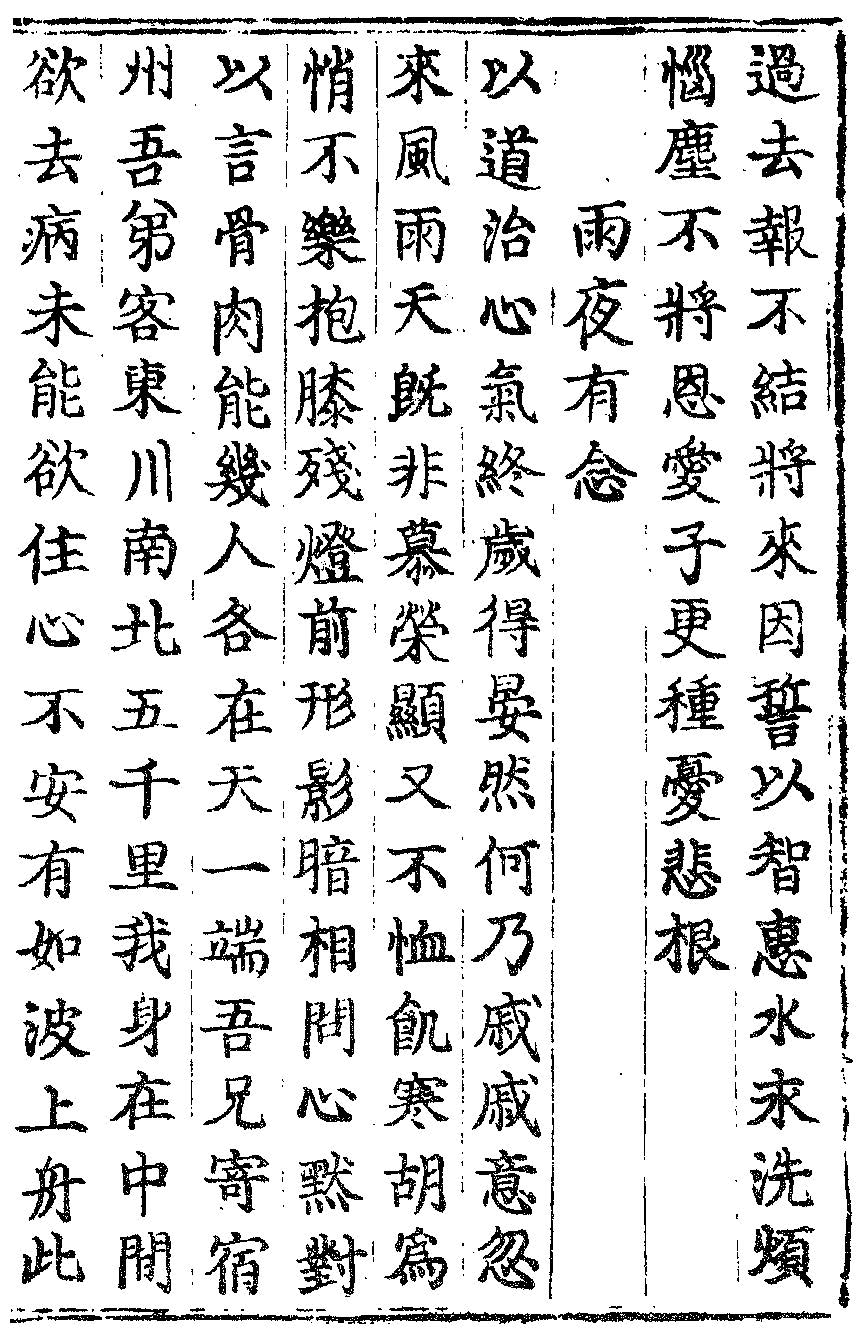 過去報不結將來因誓以智惠水永洗煩
惱塵不將恩愛子更種憂悲根
雨夜有念
以道治心氣終歲得晏然何乃戚戚意忽
來風雨天旣非慕榮顯又不恤飢寒胡爲
悄不樂抱膝殘燈前形影暗相問心默對
以言骨肉能幾人各在天一端吾兄寄宿
州吾弟客東川南北五千里我身在中間
欲去病未能欲住心不安有如波上舟此